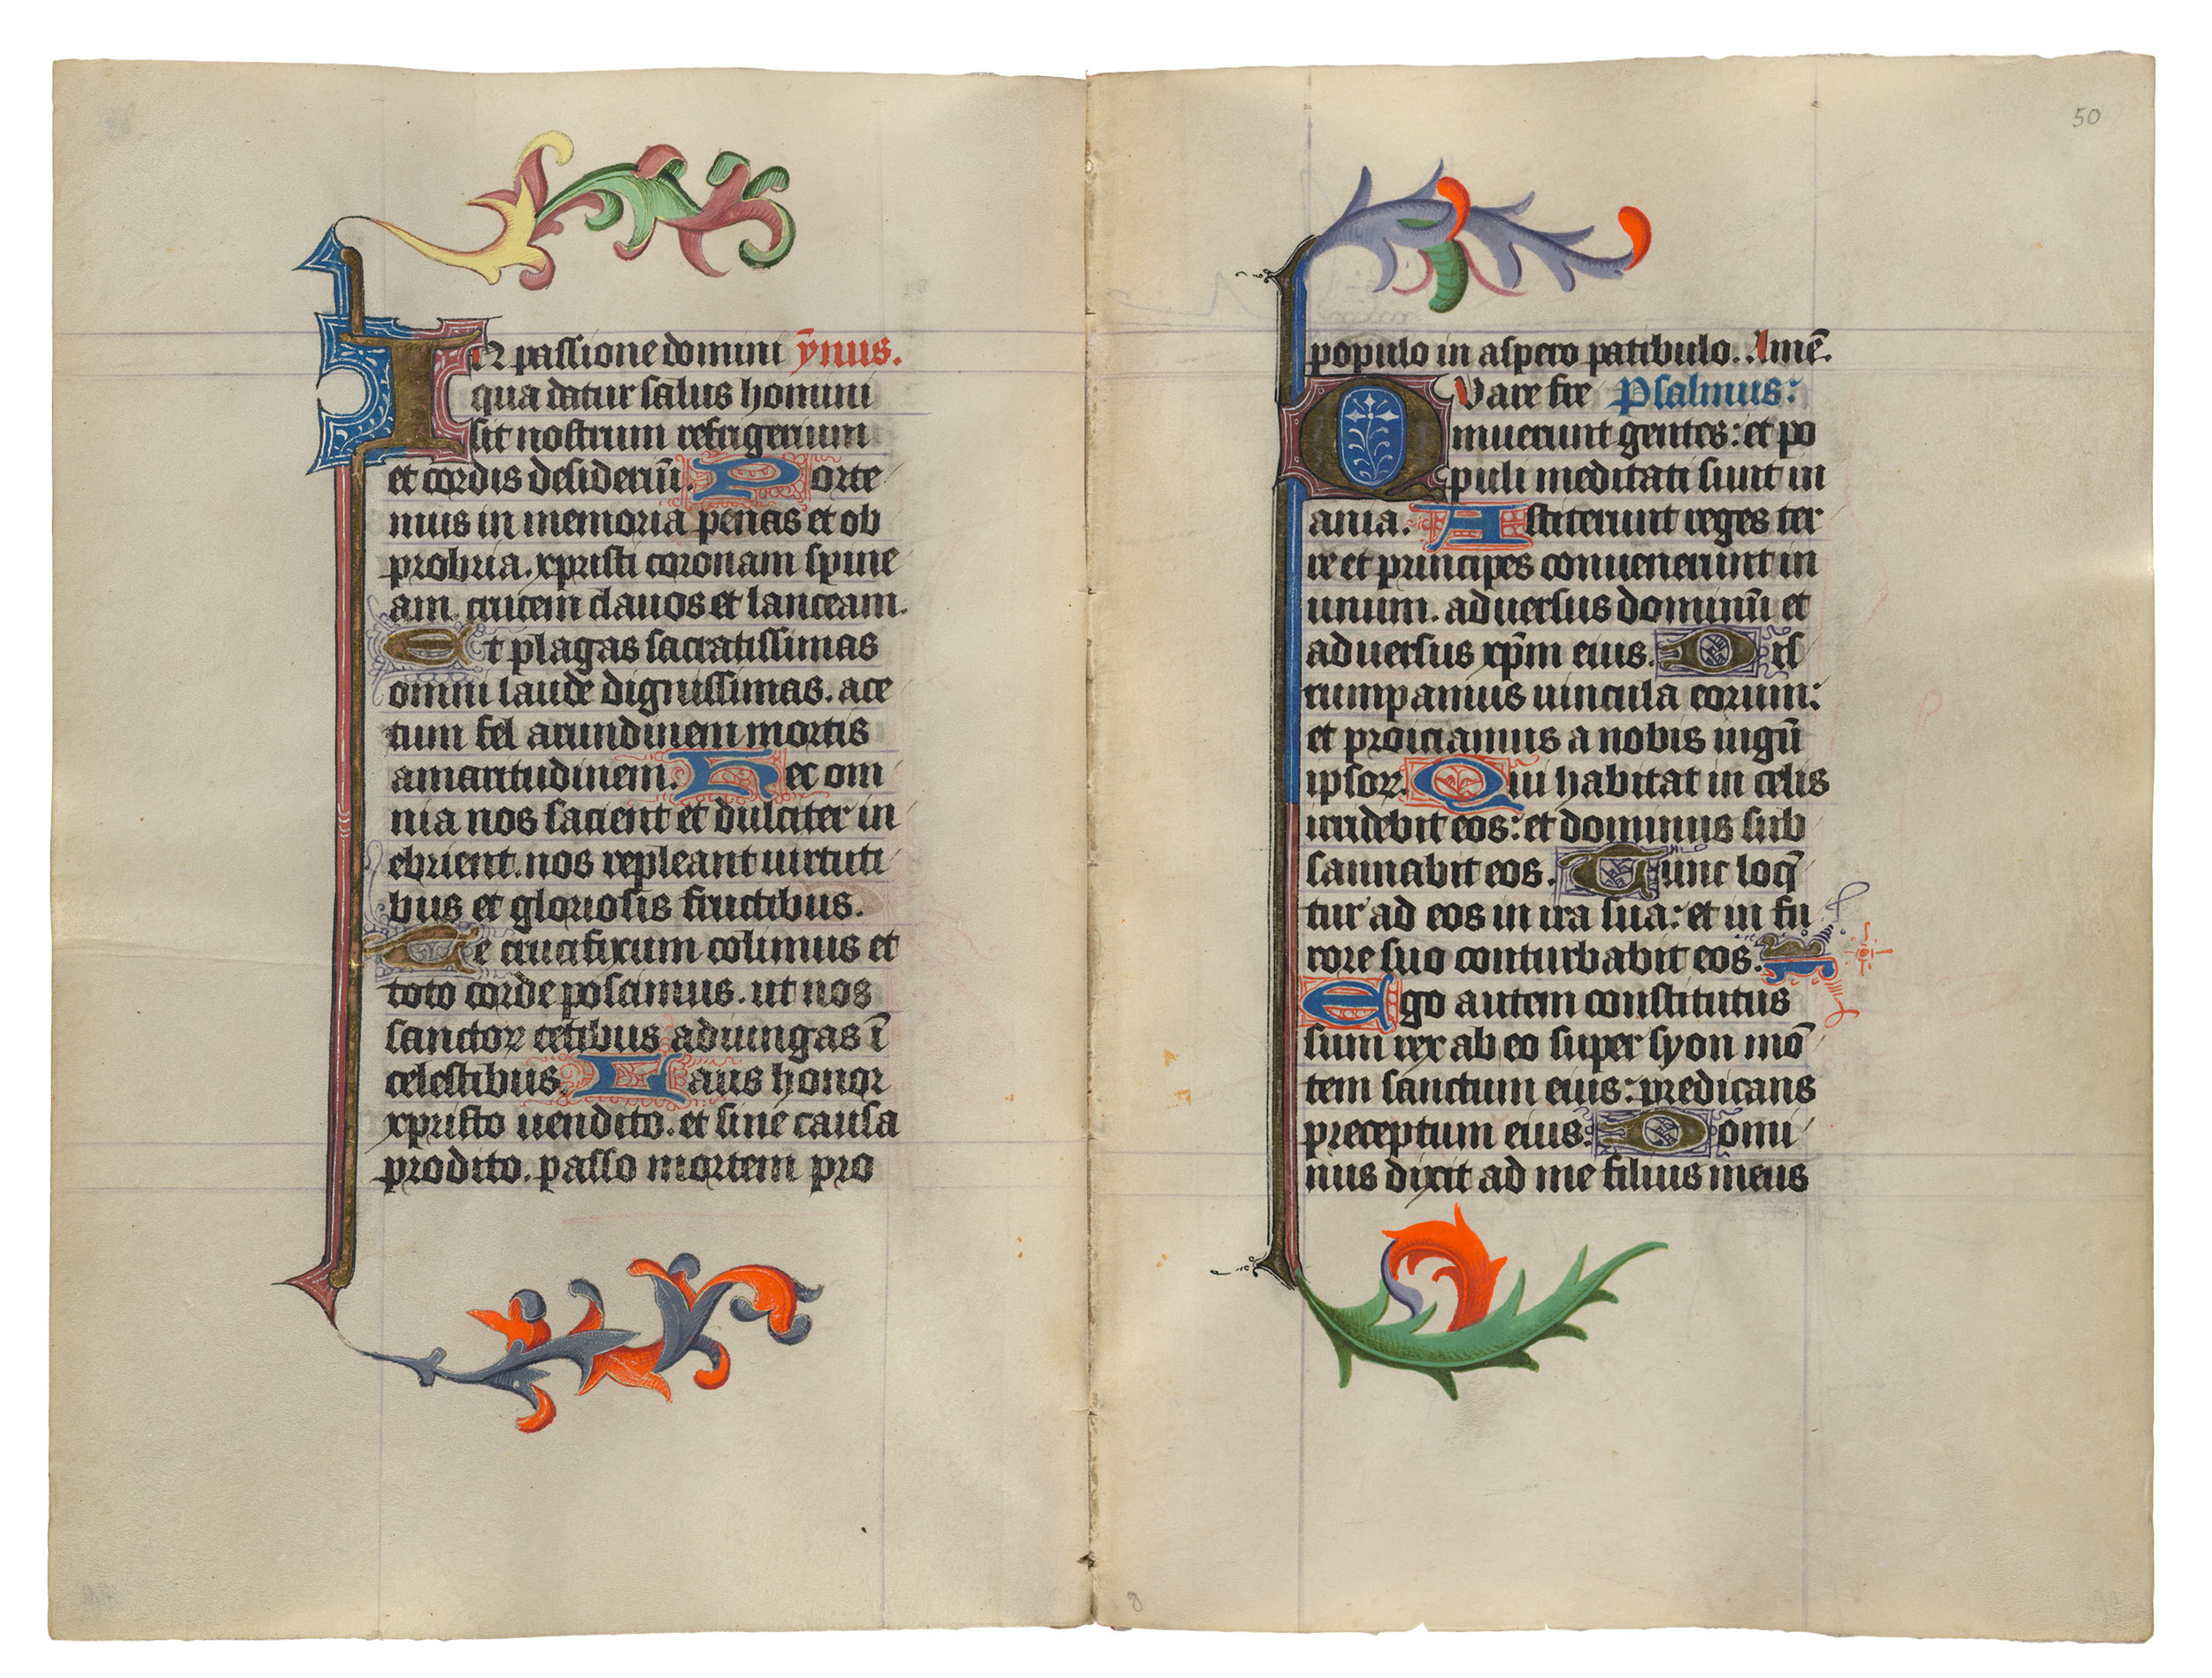 In passione domini ȳnus.
qua datur salus homini
sit nostrum refrigerium
et cordis desideriū. Porte
mus in memoria penas et ob
probria. xpristi coronam spine
am crucem clauos et lanceam.
Et plagas sacratissimas
omni laude dignissimas. ace
tum fel arundinem mortis
amaritudinem. Hec om
nia nos sacient et dulciter in
ebrient. nos repleant uirtuti
bus et gloriosis fructibus.
Te crucifixum colimus et
toto corde poscimus. ut nos
sanctoꝝ cetibus adiungas ī
celestibus. Laus honor
xpristo uendito. et sine causa
prodito. passo mortem pro
50
populo in aspero patibulo. Amē.
Quare fre Psalmus:
muerunt gentes: et po
puli meditati sunt in
ania. Astiterunt reges ter
re et principes conuenerunt in
unum. aduersus dominū et
aduersus xp̄m eius. Dis
rumpamus uincula eorum:
et proiciamus a nobis iugū
ipsoꝝ. Qui habitat in celis
irridebit eos: et dominus sub
sannabit eos. Tunc loq̄
tur ad eos in ira sua: et in fu
rore suo conturbabit eos.
Ego autem constitutus
sum rex ab eo super syon mō
tem sanctum eius: predicans
preceptum eius. Domi
nus dixit ad me filius meus
8